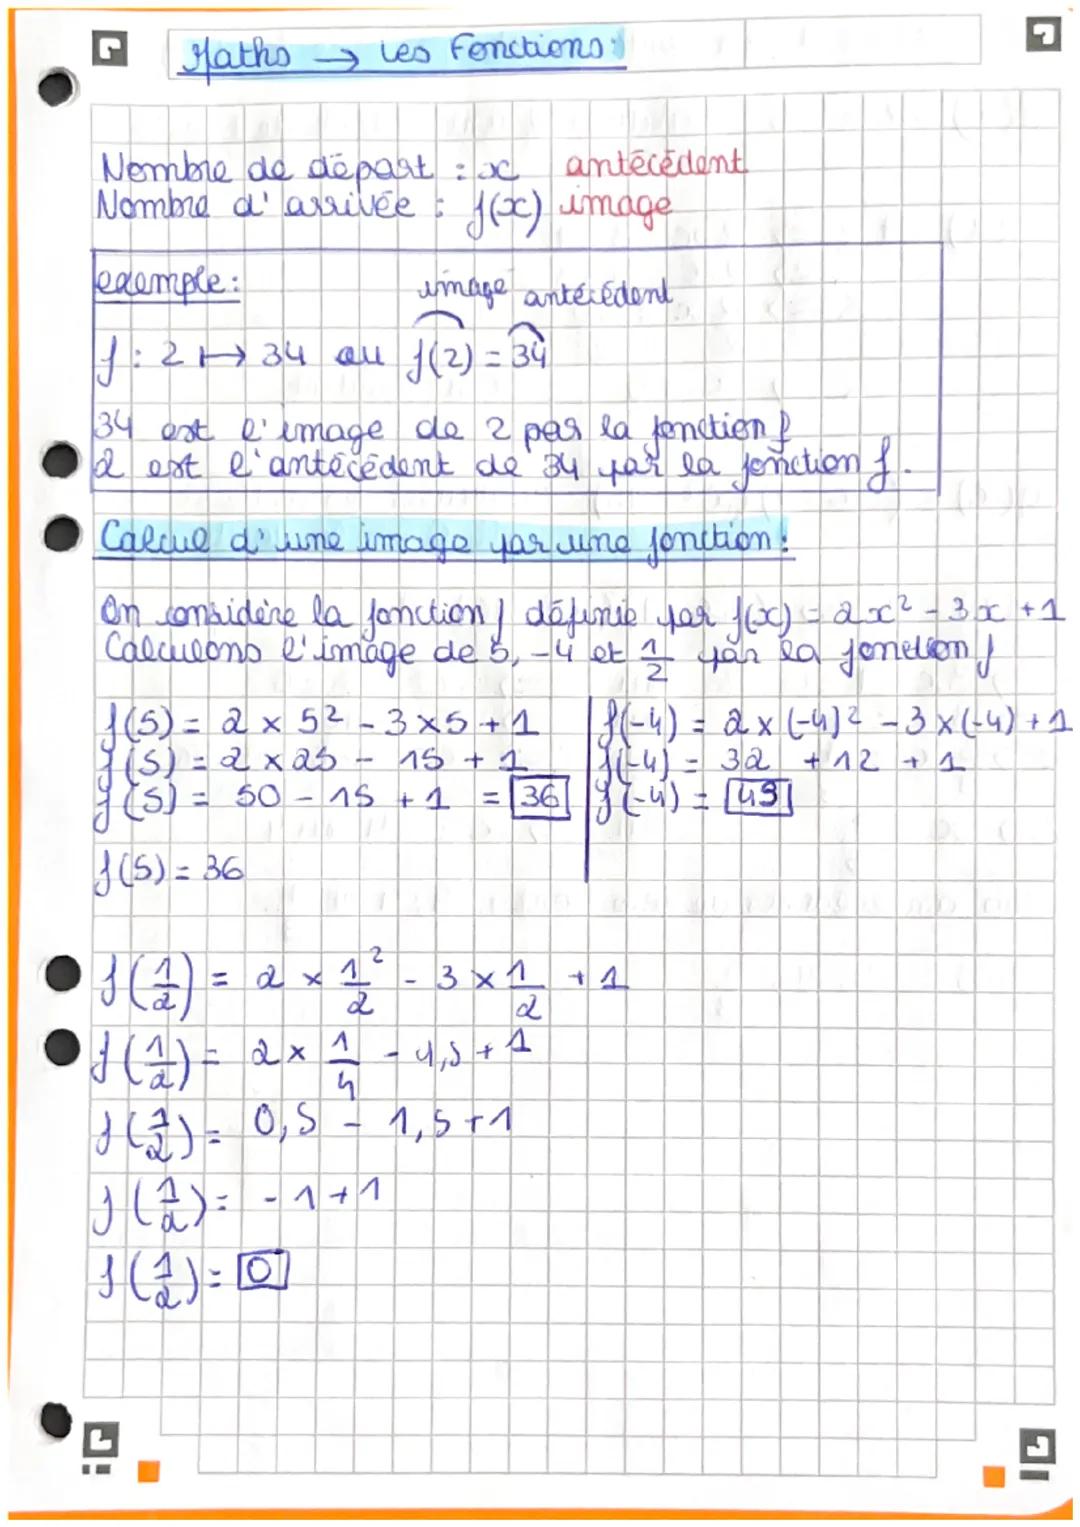 Maths → Les Fonctions:
Nombre de départ : x antécédent
Nombre d'arrivée : f(x) image
exemple:
image antécédent
f : 2 ↦ 34 ou f(2) = 34
34 est l'image de 2 par la fonction f
2 est l'antécédent de 34 par la fonction f.
Calcul d'une image par une fonction:
On considère la fonction f définie par f(x) = 2x² - 3x + 1
Calculons l'image de 5, -4 et 1/2 par la fonction f
f(5) = 2 × 5² - 3 × 5 + 1
f(5) = 2 × 25 - 15 + 1
f(5) = 50 - 15 + 1 = 36
f(5) = 36
f(-4) = 2 × (-4)² - 3 × (-4) + 1
f(-4) = 32 + 12 + 1
f(-4) = 45
f(1/2) = 2 × 1²/2 - 3 × 1/2 + 1
f(1/2) = 2 × 1/4 - 1,5 + 1
f(1/2) = 0,5 - 1,5 + 1
f(1/2) = -1 + 1
f(1/2) = 0